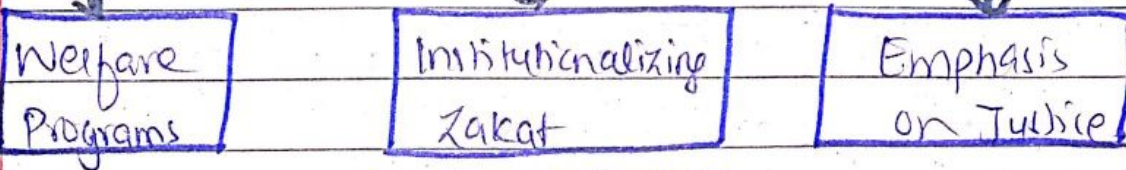 Welfare
Programs
Institutionalizing
Zakat
Emphasis
on Justice